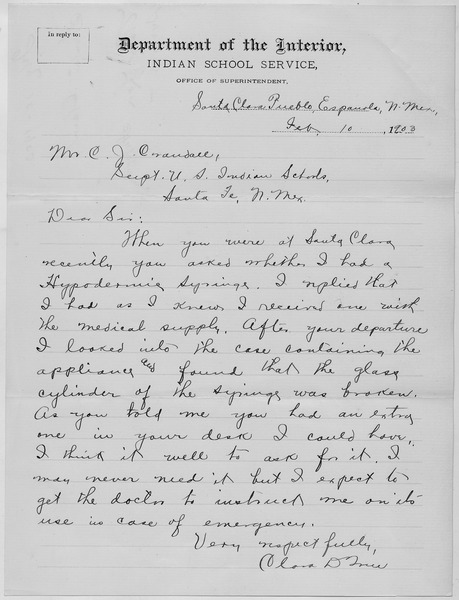 In reply to:
Department of the Interior,
INDIAN SCHOOL SERVICE,
OFFICE OF SUPERINTENDENT.
Santa Clara Pueblo, Espanola, N. Mex.,
Feb. 10, 1903
Mr. C. J. Crandall,
Supt. U. S. Indian Schools,
Santa Fe, N. Mex.
Dear Sir:
When you were at Santa Clara
recently you asked whether I had a
Hypodermic Syringe. I replied that
I had as I knew I received one with
the medical supply. After your departure
I looked into the case containing the
appliance and found that the glass
cylinder of the syringe was broken.
As you told me you had an extra
one in your desk I could have,
I think it well to ask for it. I
may never need it but I expect to
get the doctor to instruct me on its
use in case of emergency.
Very respectfully,
Clara D. True